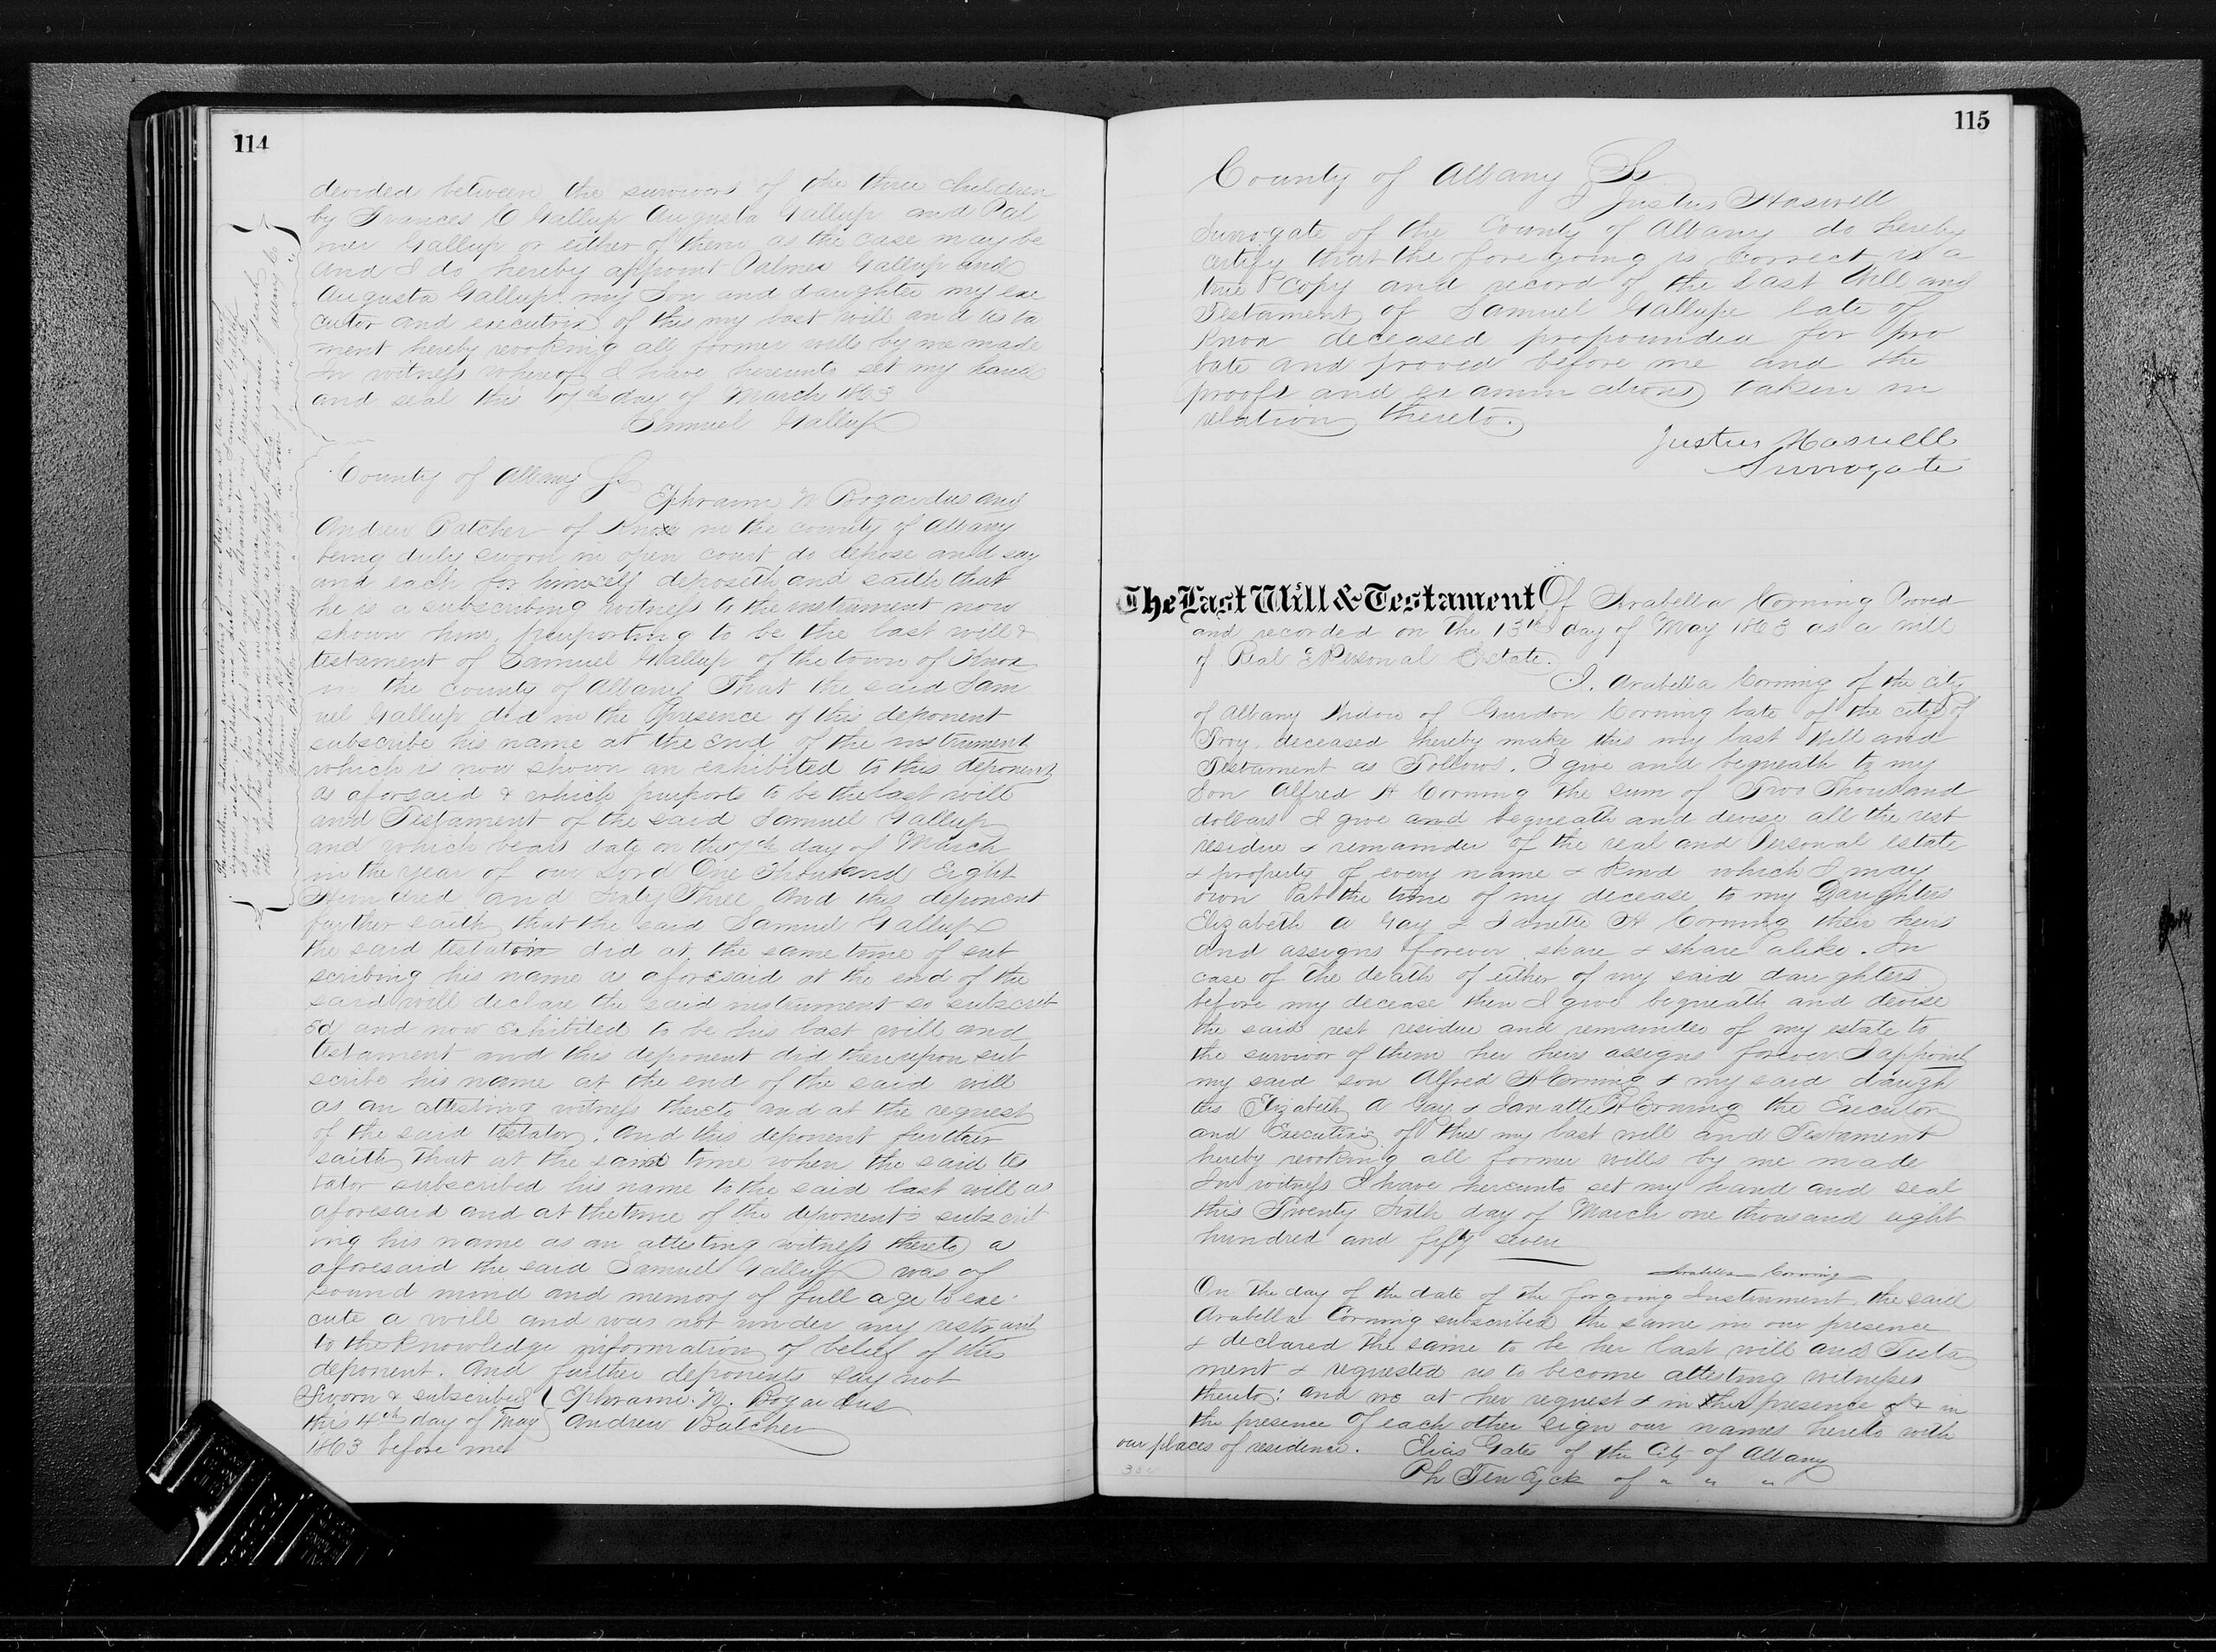 114
devided between the survivors of the three children
by Frances C Gallup Augusta Gallup and Pal
mer Gallup or either of them as the case may be
and I do hereby appoint Palmer Gallup and
Augusta Gallup my Son and daughter my exe
cutor and executrix of this my last will and testa
ment hereby revoking all former wills by me made
In witness whereof I have hereunto set my hand
and seal this 7th day of March 1863
Samuel Gallup
The within instrument consisting of one sheet was at the date thereof
signed sealed published and declared by the said Samuel Gallup
as and for his last will and testament in presence of us
who at his request and in his presence and in presence of each
other have subscribed our names as witnesses thereto
Ephraim N Bogardus residing in the town of Knox Albany Co
Andrew Batcher residing " " " " " "
County of Albany Ss
Ephraim N Bogardus and
Andrew Batcher of Knox in the county of Albany
being duly sworn in open court do depose and say
and each for himself deposeth and saith that
he is a subscribing witness to the instrument now
shown him, purporting to be the last will &
testament of Samuel Gallup of the town of Knox
in the county of Albany That the said Sam
uel Gallup did in the presence of this deponent
subscribe his name at the end of the instrument
which is now shown an exhibited to this deponent
as aforsaid & which purports to be the last will
and Testament of the said Samuel Gallup
and which bears date on the 7th day of March
in the year of our Lord One Thousand Eight
Hundred and Sixty Three And this deponent
further saith, that the said Samuel Gallup
the said testator did at the same time of sub
scribing his name as aforesaid at the end of the
said will declare the said instrument so subscrib
ed and now exhibited to be his last will and
testament and this deponent did thereupon sub
scribe his name at the end of the said will
as an attesting witness thereto and at the request
of the said testator. And this deponent further
saith, That at the same time when the said tes
tator subscribed his name to the said last will as
aforesaid and at the time of the deponent's subscrib
ing his name as an attesting witness thereto a
aforesaid the said Samuel Gallup was of
sound mind and memory of full age to exe
cute a will and was not under any restraint
to the knowledge information of belief of this
deponent. And further deponents say not
Sworn & subscribed Ephraim N. Bogardus
this 4th day of May Andrew Batcher
1863 before me
115
County of Albany Ss
I Justus Haswell
Surrogate of the County of Albany do hereby
certify that the foregoing is correct is a
true Copy and record of the last Will and
Testament of Samuel Gallup late of
Knox deceased propounded for pro
bate and proved before me and the
proofs and examinations taken in
relation thereto.
Justus Haswell
Surrogate
The Last Will & Testament Of Arabella Corning Proved
and recorded on the 13th day of May 1863 as a will
of Real & Personal Estate.
I. Arabella Corning of the city
of Albany Widow of Gurdon Corning late of the city of
Troy deceased hereby make this my last Will and
Testament as Follows. I give and bequeath to my
Son Alfred H Corning the sum of Two Thousand
dollars I give and bequeath and devise all the rest
residue & remainder of the real and Personal estate
& property of every name & kind which I may
own at the time of my decease to my Daughters
Elizabeth A Gay & Janette H Corning their heirs
and assigns forever share & share alike. In
case of the death of either of my said daughters
before my decease then I give bequeath and devise
the said rest residue and remainder of my estate to
the survivor of them her heirs assigns forever. I appoint
my said son Alfred H Corning & my said daugh
ters Elizabeth A Gay & Janatte H Corning the Executor
and Executrix of this my last will and Testament
hereby revoking all former wills by me made
In witness I have hereunto set my hand and seal
this Twenty Sixth day of March one thousand eight
hundred and fifty seven
Arabella Corning
On the day of the date of the forgoing Instrument, the said
Arabella Corning subscribed the same in our presence
& declared the same to be her last will and Testa
ment & requested us to become attesting witnesses
thereto: and we at her request & in her presence & in
the presence of each other sign our names hereto with
our places of residence. Elias Gates of the City of Albany
Ph Ten Eyck of " " "